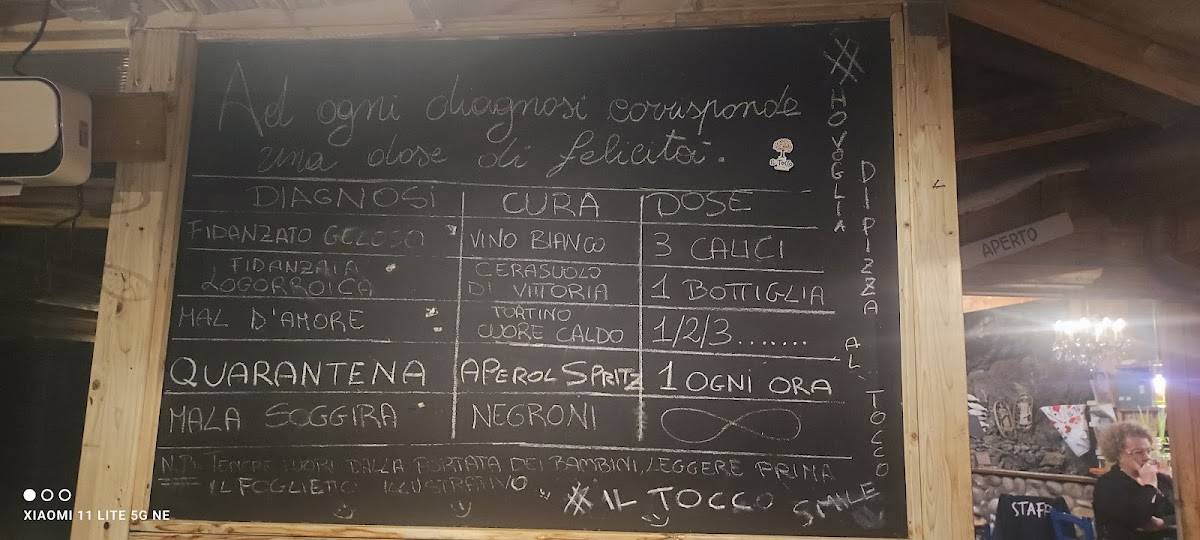 Ad ogni diagnosi corrisponde
una dose di felicità.
IL TOCCO
DIAGNOSI CURA DOSE
FIDANZATO GELOSO VINO BIANCO 3 CALICI
FIDANZATA LOGORROICA CERASUOLO DI VITTORIA 1 BOTTIGLIA
MAL D'AMORE TORTINO CUORE CALDO 1/2/3.......
QUARANTENA APEROL SPRITZ 1 OGNI ORA
MALA SOGGIRA NEGRONI ∞
N.B. TENERE FUORI DALLA PORTATA DEI BAMBINI, LEGGERE PRIMA
IL FOGLIETTO ILLUSTRATIVO
# IL TOCCO SMILE
# HO VOGLIA
DI PIZZA
AL TOCCO
APERTO
STAFF
XIAOMI 11 LITE 5G NE